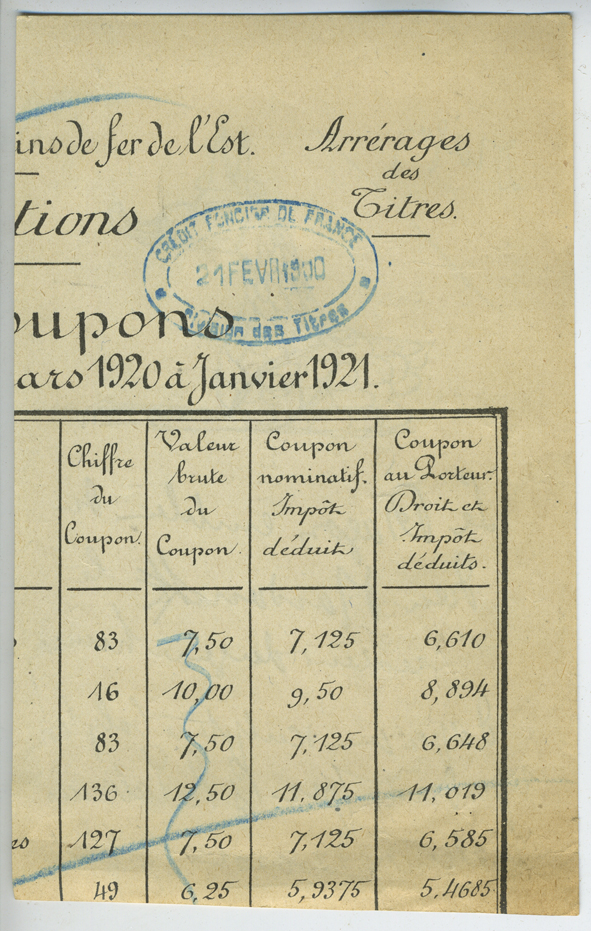 ins de fer de l'Est.
Arrérages
des
Titres.
tions
CRÉDIT FONCIER DE FRANCE
21 FEVR 1920
des Titres
oupons
ars 1920 à Janvier 1921.
Chiffre du Coupon.
Valeur brute du Coupon.
Coupon nominatif. Impôt déduit
Coupon au Porteur. Droit et Impôt déduits.
83 7,50 7,125 6,610
16 10,00 9,50 8,894
83 7,50 7,125 6,648
136 12,50 11,875 11,019
rs 127 7,50 7,125 6,585
49 6,25 5,9375 5,4685